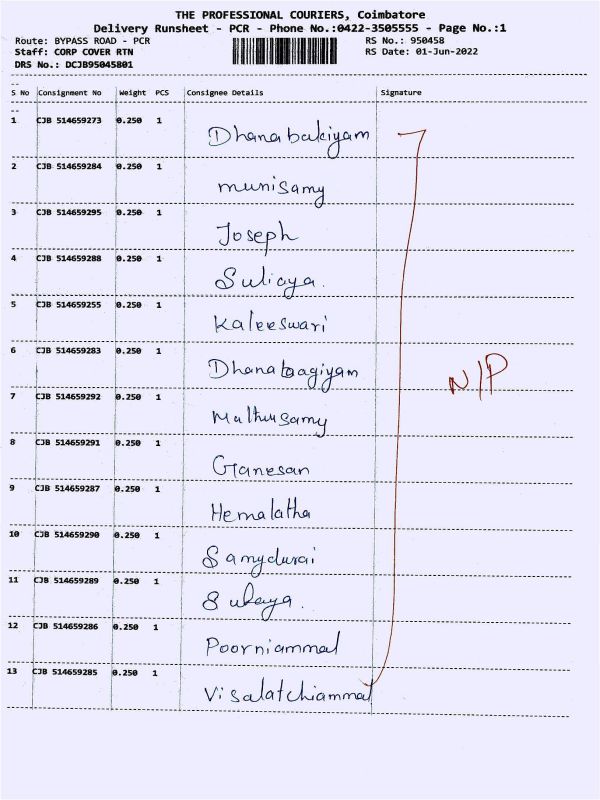 THE PROFESSIONAL COURIERS, Coimbatore
Delivery Runsheet - PCR - Phone No.:0422-3505555 - Page No.:1
Route: BYPASS ROAD - PCR RS No.: 950458
Staff: CORP COVER RTN RS Date: 01-Jun-2022
DRS No.: DCJB95045801
--
S No Consignment No Weight PCS Consignee Details Signature
--
1 CJB 514659273 0.250 1 Dhanabakiyam
2 CJB 514659284 0.250 1 munisamy
3 CJB 514659295 0.250 1 Joseph
4 CJB 514659288 0.250 1
5 CJB 514659255 0.250 1 Kaleeswari
6 CJB 514659283 0.250 1 Dhanabagiyam
N/P
7 CJB 514659292 0.250 1 Muthusamy
8 CJB 514659291 0.250 1 Ganesan
9 CJB 514659287 0.250 1 Hemalatha
10 CJB 514659290 0.250 1 Samydurai
11 CJB 514659289 0.250 1
12 CJB 514659286 0.250 1 Poorniammal
13 CJB 514659285 0.250 1 Visalatchiammal